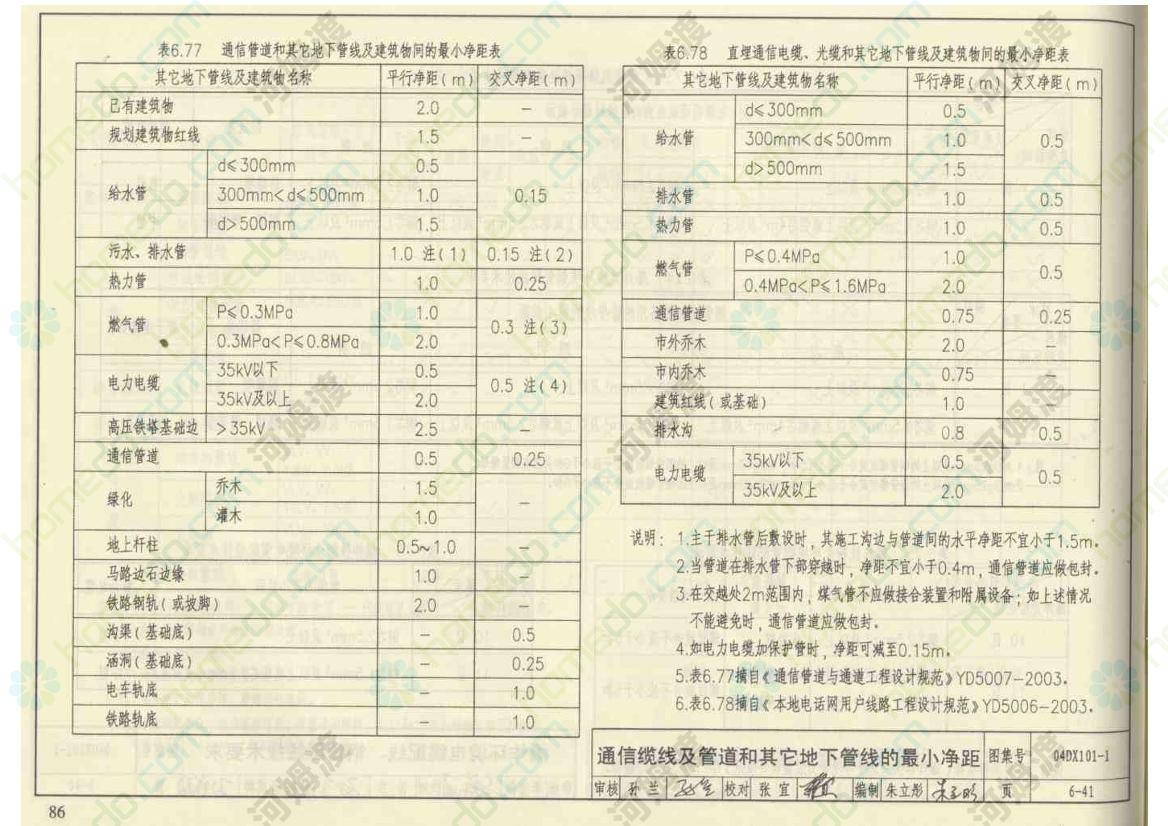 表6.77 通信管道和其它地下管线及建筑物间的最小净距表
其它地下管线及建筑物名称 平行净距(m) 交叉净距(m)
已有建筑物 2.0 —
规划建筑物红线 1.5 —
给水管 d≤300mm 0.5 0.15
300mm<d≤500mm 1.0
d>500mm 1.5
污水、排水管 1.0 注(1) 0.15 注(2)
热力管 1.0 0.25
燃气管 P≤0.3MPa 1.0 0.3 注(3)
0.3MPa<P≤0.8MPa 2.0
电力电缆 35kV以下 0.5 0.5 注(4)
35kV及以上 2.0
高压铁塔基础边 >35kV 2.5 —
通信管道 0.5 0.25
绿化 乔木 1.5 —
灌木 1.0
地上杆柱 0.5~1.0 —
马路边石边缘 1.0 —
铁路钢轨(或坡脚) 2.0 —
沟渠(基础底) — 0.5
涵洞(基础底) — 0.25
电车轨底 — 1.0
铁路轨底 — 1.0
表6.78 直埋通信电缆、光缆和其它地下管线及建筑物间的最小净距表
其它地下管线及建筑物名称 平行净距(m) 交叉净距(m)
给水管 d≤300mm 0.5 0.5
300mm<d≤500mm 1.0
d>500mm 1.5
排水管 1.0 0.5
热力管 1.0 0.5
燃气管 P≤0.4MPa 1.0 0.5
0.4MPa<P≤1.6MPa 2.0
通信管道 0.75 0.25
市外乔木 2.0 —
市内乔木 0.75 —
建筑红线(或基础) 1.0 —
排水沟 0.8 0.5
电力电缆 35kV以下 0.5 0.5
35kV及以上 2.0
说明: 1.主干排水管后敷设时,其施工沟边与管道间的水平净距不宜小于1.5m。
2.当管道在排水管下部穿越时,净距不宜小于0.4m,通信管道应做包封。
3.在交越处2m范围内,煤气管不应做接合装置和附属设备;如上述情况
不能避免时,通信管道应做包封。
4.如电力电缆加保护管时,净距可减至0.15m。
5.表6.77摘自《通信管道与通道工程设计规范》YD5007-2003。
6.表6.78摘自《本地电话网用户线路工程设计规范》YD5006-2003。
通信缆线及管道和其它地下管线的最小净距 图集号 04DX101-1
审核 孙兰 校对 张宜 编制 朱立彤 朱立彤 页 6-41
86
homedo.com
河姆渡